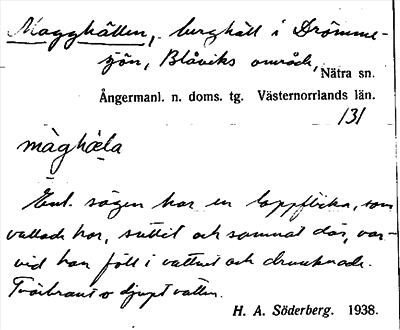 Magghällen, berghäll i Drömme-
sjön, Blåviks område,
Nätra sn.
Ångermanl. n. doms. tg. Västernorrlands län.
131
màghæla
Enl. sägen har en lappflicka, som
vallade här, suttit och somnat där, var-
vid hon föll i vattnet och drunknade.
Tvärbrant o djupt vatten.
H. A. Söderberg. 1938.